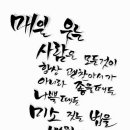 매일 웃는
사람은 모든것이
항상 괜찮아서가
아니라 좋을때도
나쁠때도
미소 짓는 법을